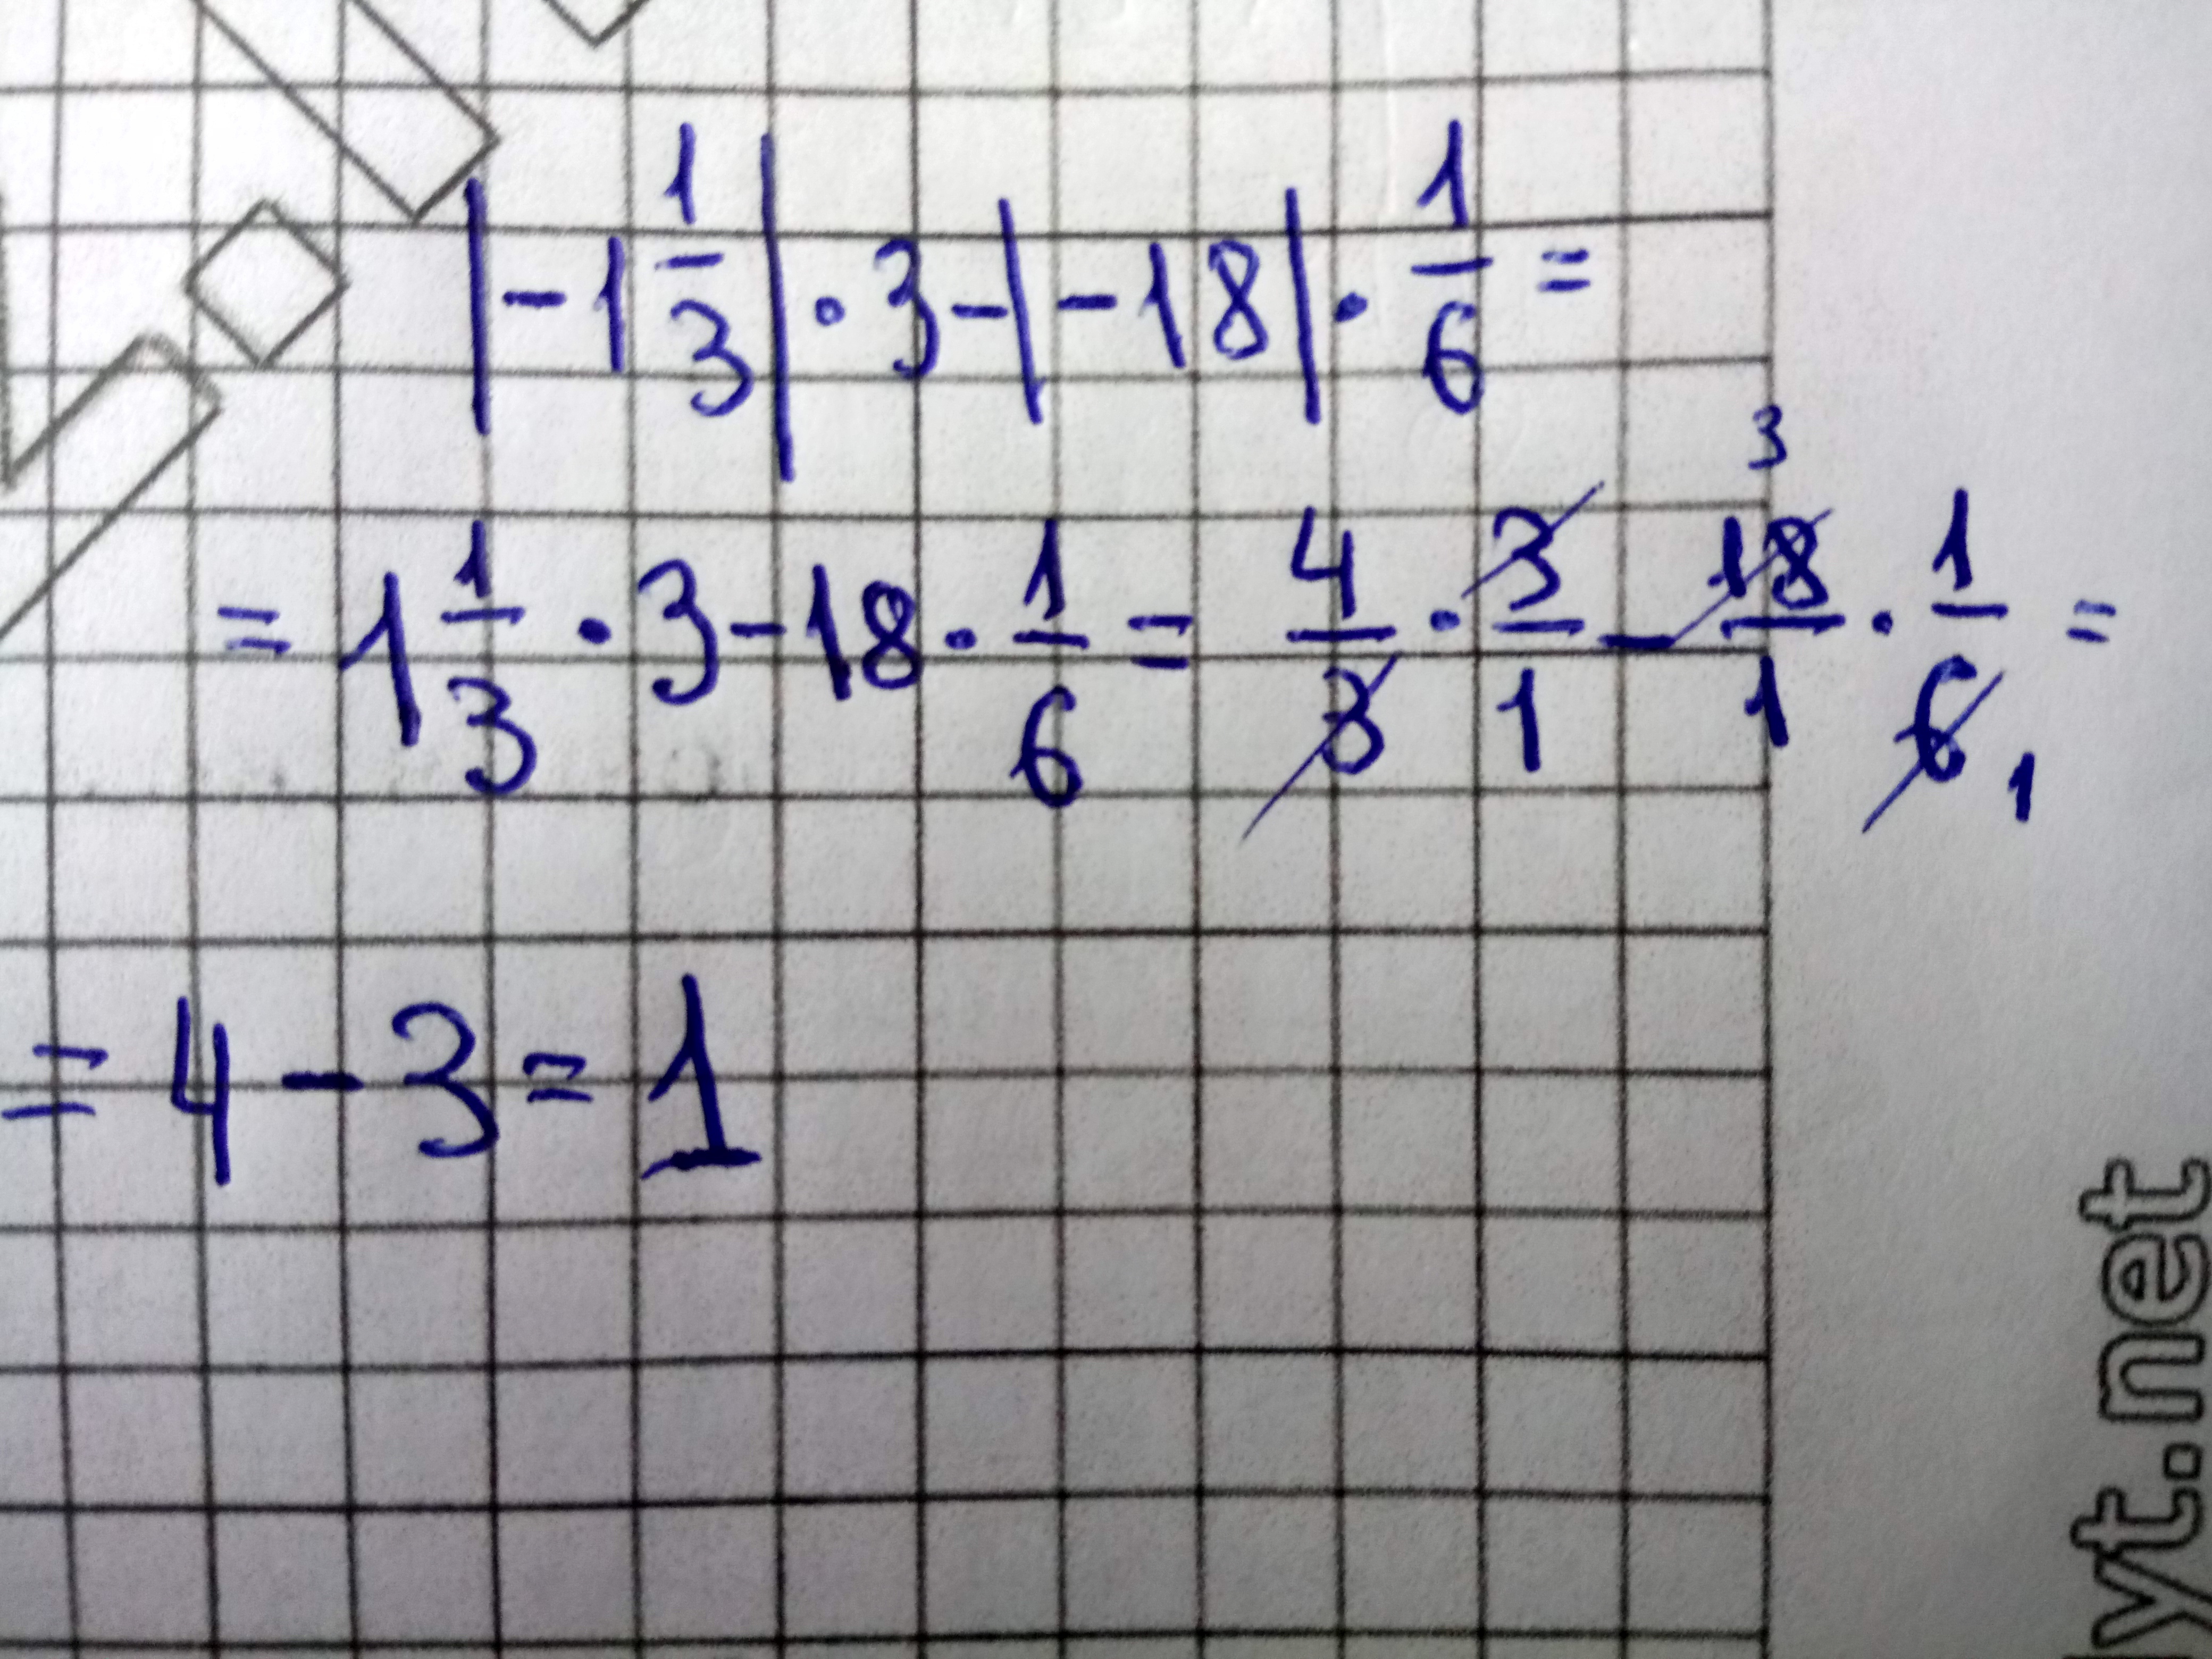 |-1 1/3| · 3 - |-18| · 1/6 =
= 1 1/3 · 3 - 18 · 1/6 = 4/3 · 3/1 - 18/1 · 1/6 =
3
1
= 4 - 3 = 1
yt.net